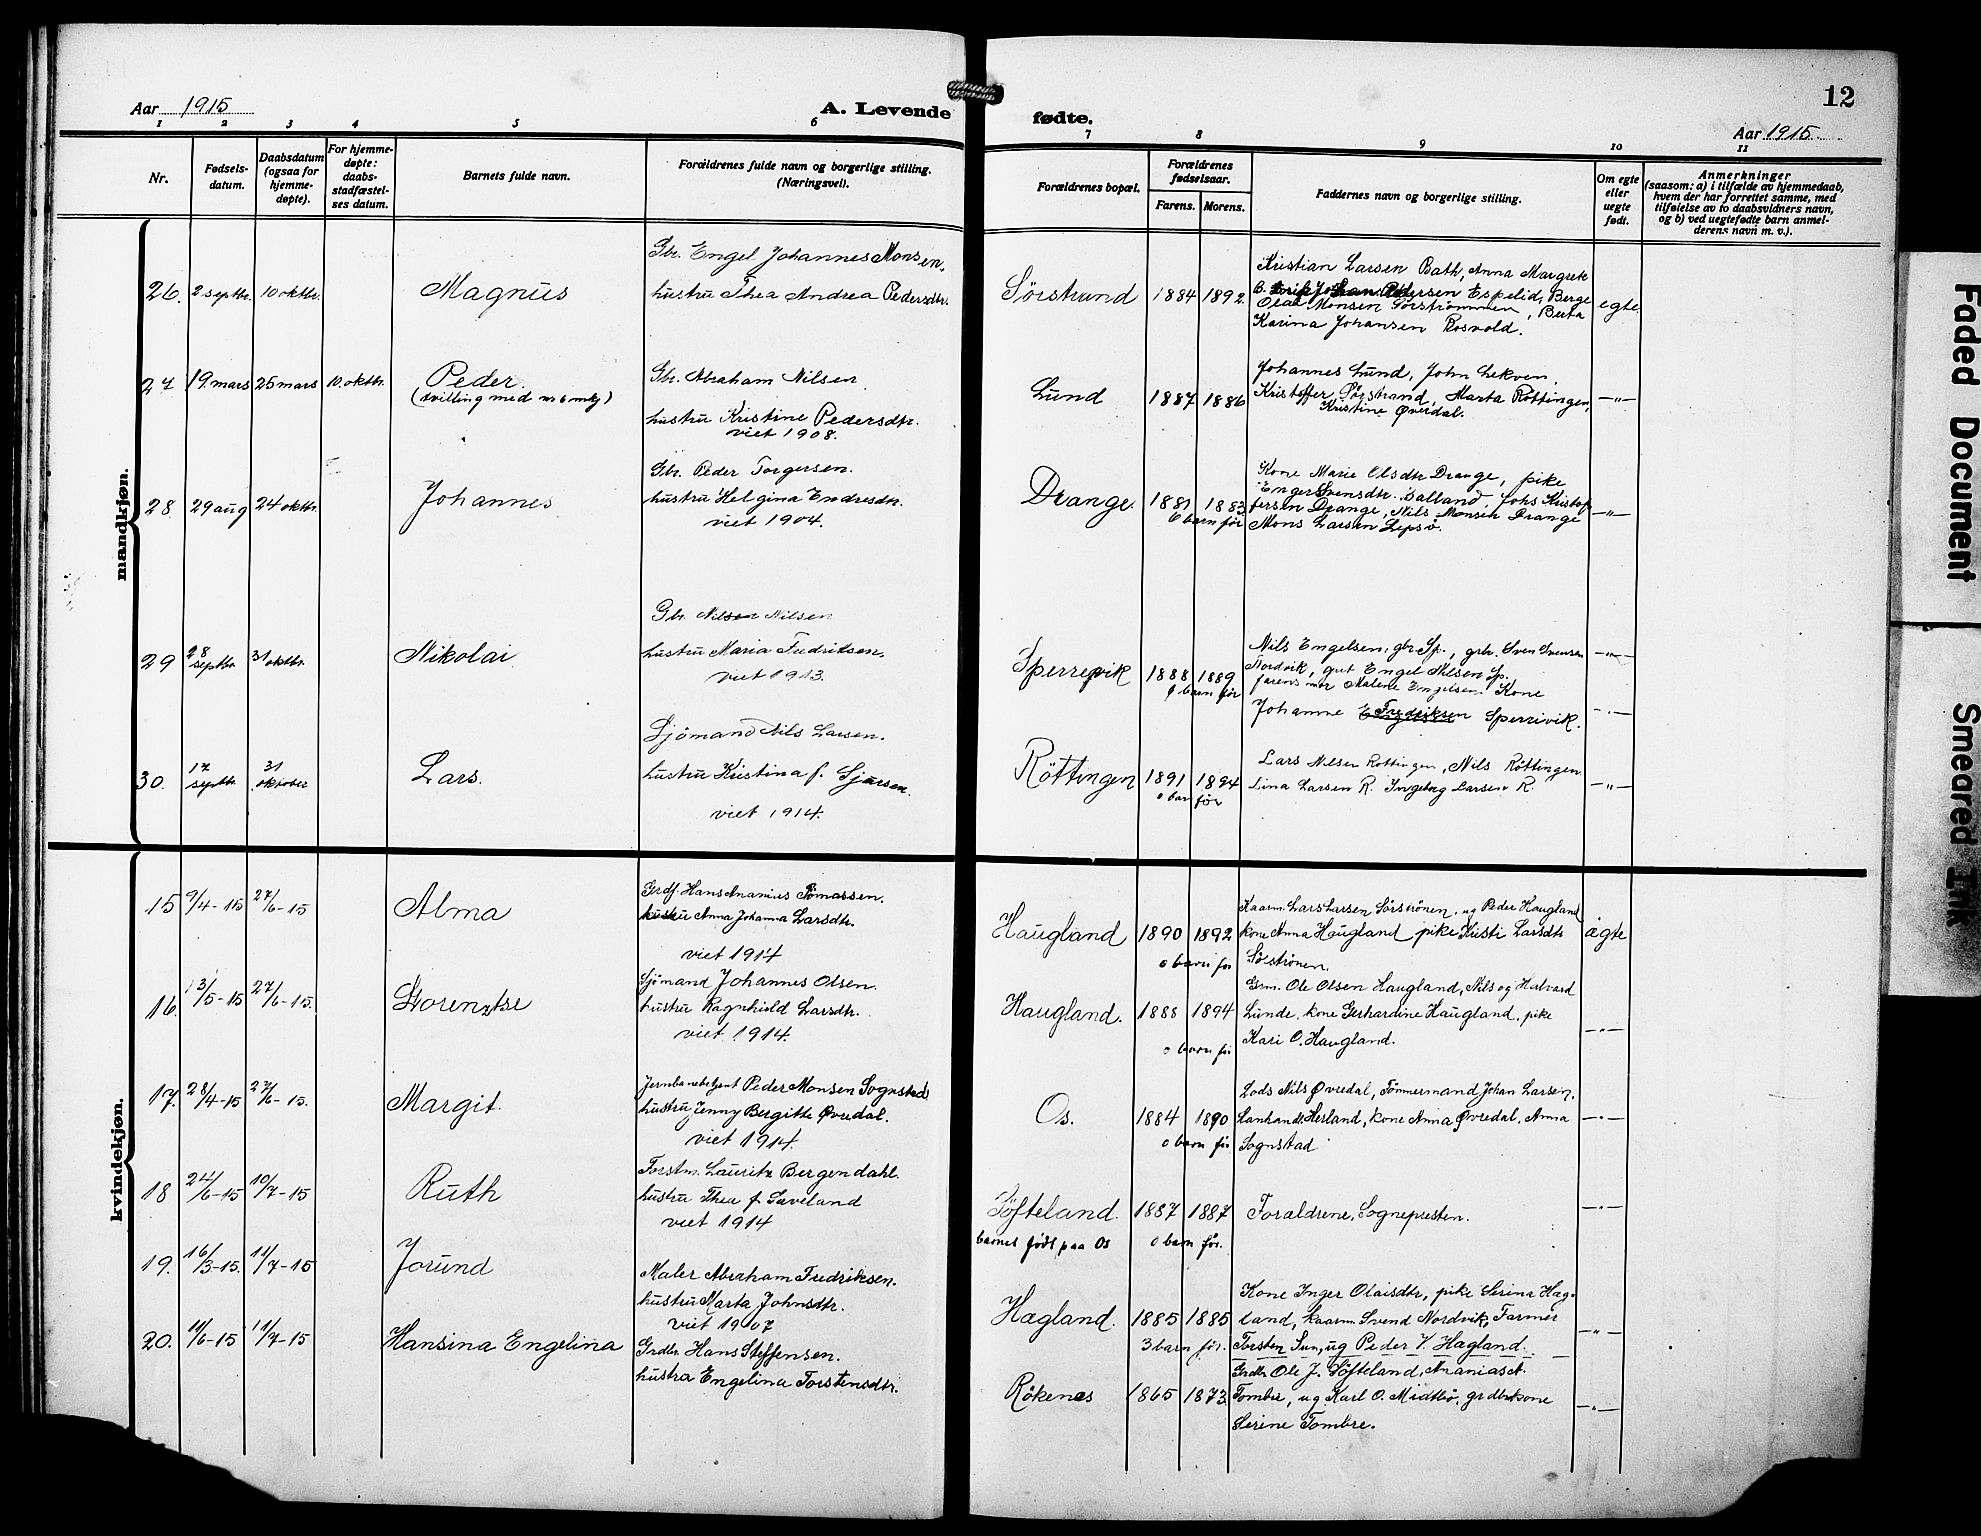 Aar 1915
A. Levende
fødte.
12
Aar 1915
1 2 3 4 5 6 7 8 9 10 11
Nr.
Fødsels-
datum.
Daabsdatum
(ogsaa for
hjemme-
døpte).
For hjemme-
døpte:
daabs-
stadfæstel-
ses datum.
Barnets fulde navn.
Forældrenes fulde navn og borgerlige stilling.
(Næringsvei).
Forældrenes bopæl.
Forældrenes
fødselsaar.
Farens. Morens.
Faddernes navn og borgerlige stilling.
Om egte
eller
uegte
født.
Anmerkninger
(saasom: a) i tilfælde av hjemmedaab,
hvem der har forrettet samme, med
tilføielse av to daabsvidners navn,
og b) ved uegtefødte barn anmel-
derens navn m. v.).
mandkjøn.
26. 2 septbr. 10 oktbr. Magnus
Gbr. Engel Johannes Monsen.
hustru Thea Andrea Pedersdtr.
Sörstrand 1884 1892
Kristian Larsen Bath, Anna Margrete
Pedersen Espelid, Berge
Olai Monsen Sörströnmen, Berta
Karina Johansen Rosvold.
egte
27 19. mars 25 mars 10. oktbr. Peder.
(tvilling med nr 6 mkj)
Gbr. Abraham Nilsen
hustru Kristine Pedersdtr.
viet 1908.
Lund 1887 1886
Johannes Lund, John Lekven,
Kristoffer Sörstrand, Marta Röttingen,
Kristine Øvredal.
—"—
28. 29 aug 24 oktbr. Johannes
Gbr. Peder Torgersen.
hustru Helgina Endresdtr.
viet 1904.
Drange. 1881 1883.
6 barn før
Kone Marie Olsdtr Drange, pike
Svensdtr. Johs Kristof-
fersen Drange, Nils Monsen Drange
Mons Larsen Lepsö.
—"—
29 28 septbr 31 oktbr. Nikolai
Gbr. Nilsen Nilsen
hustru Maria Fredriksen.
viet 1913.
Sperrevik 1888 1889
barn før
Nils Engelsen, gbr Sp., grbr. Sven Svensen
Nordvik, gut Engel Nilsen Sp.
farens mor Malene Engelsen. Kone
Johanne Fredriksen Sperrivik.
—"—
—"—
30. 17 septbr. 31 oktober Lars.
Sjömand Nils Larsen.
hustru Kristina f. Sjursen.
viet 1914.
Röttingen 1891 1894
0 barn før
Lars Nilsen Röttingen, Nils Röttingen
Lina Larsen R. Ingeborg Larsen R.
—"—
kvindekjøn.
15 9/4-15 27/6-15 Alma
Grdf. Hans Ananias Tömassen.
hustru Anna Johanna Larsdtr.
viet 1914
Haugland 1890 1892
0 barn før
Kaarm. Lars Larsen Sörströnen, ug Peder Haugland
kone Anna Haugland pike Kristi Larsdtr
Sörströnen.
ægte
16. 13/5-15 27/6-15. Lorentse
Sjömand Johannes Olsen.
hustru Ragnhild Larsdtr.
viet 1914.
Haugland. 1888 1894
0 barn før
Grm. Ole Olsen Haugland, Nils og Halvard
Lunde, kone Gerhardine Haugland, pike
Kari O. Haugland.
—"—
17. 28/4-15 27/6-15. Margit.
Jernbanebetjent Peder Monsen Sognstad
hustru Jenny Bergitte Øvredal.
viet 1914.
Os. 1884 1890
0 barn før
Lods Nils Øvredal, Tömmermand Johan Larsen.
Lanhandl. Hesland, kone Anna Øvredal, Anna
Sognstad
—"—
18 24/6-15 10/7-15 Ruth
Forstm. Lauritz Bergendahl.
hustru Thea f. Saveland
viet 1914
Söfteland. 1887 1887
barnet født paa Os 0 barn før.
Foraldrene, Sognepresten.
—"—
19. 16/3-15. 11/7-15 Jorund
Maler Abraham Fredriksen.
hustru Marta Johnsdtr.
viet 1907
Hagland. 1885 1885
3 barn før.
Kone Inger Olaisdtr, pike Serina Hag-
land, kaarm. Svend Nordvik, Farmer
Torsten Sun, ug Peder V. Hagland.
—"—
20. 11/6-15 11/7-15 Hansina Engelina
Grdbr. Hans Steffensen.
hustra Engelina Torstensdtr.
Rökenes 1865 1873
Grdbr Ole J. Söfteland, Ananias A.
Tombre, ug Karl O. Midtbö, grdbrkone
Serine Tombre.
—"—
Faded Document
Smeared Ink